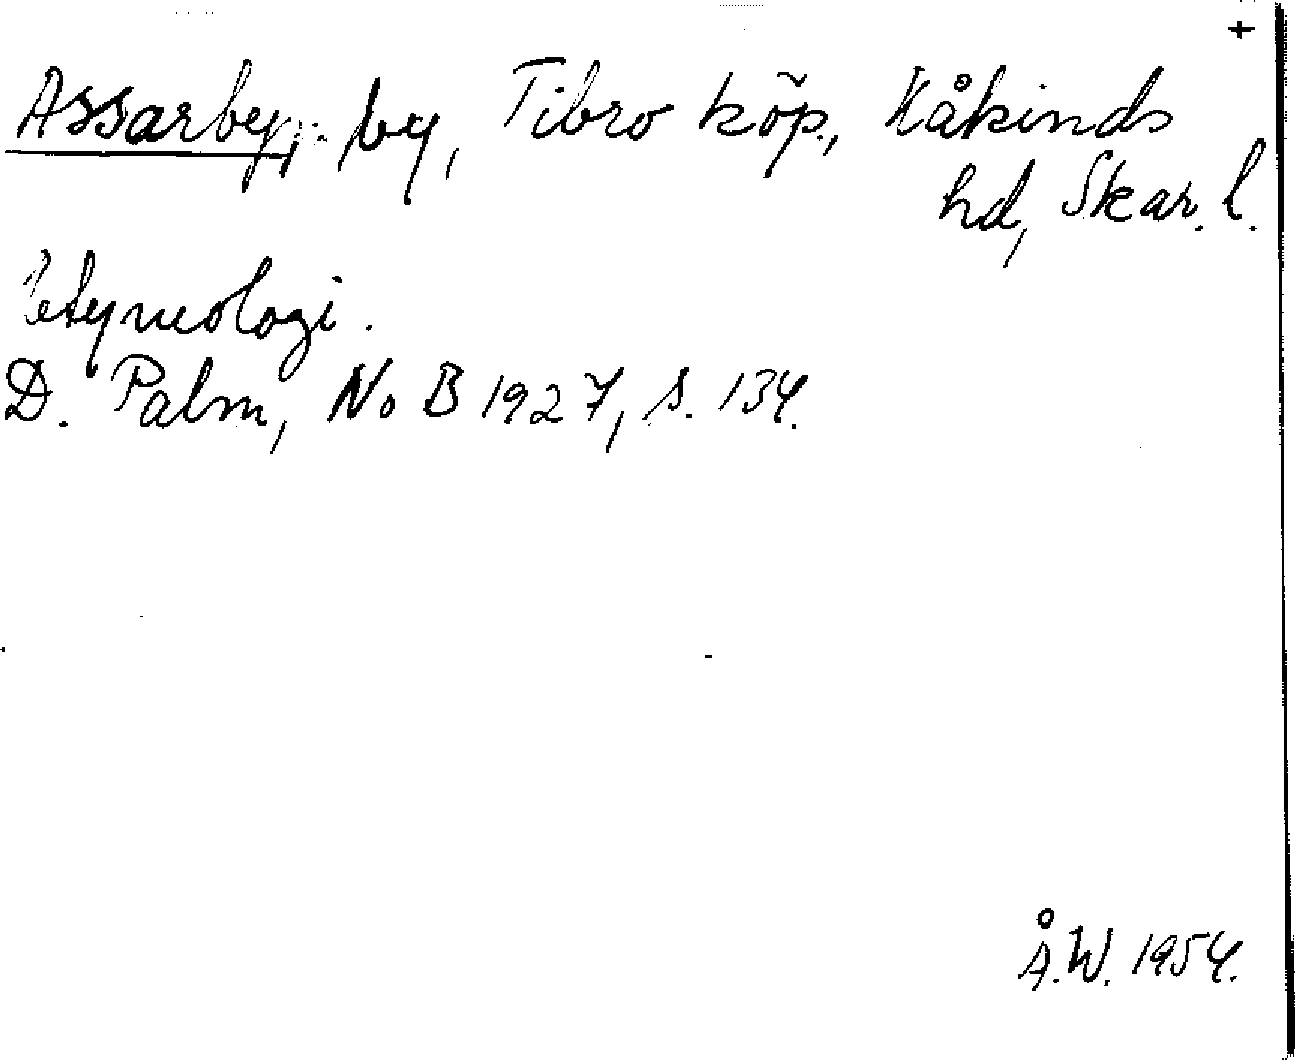 +
Assarby, by, Tibro köp., Kåkinds
hd, Skar. l.
Etymologi.
D. Palm, NoB 1927, s. 134.
Å.W. 1954.